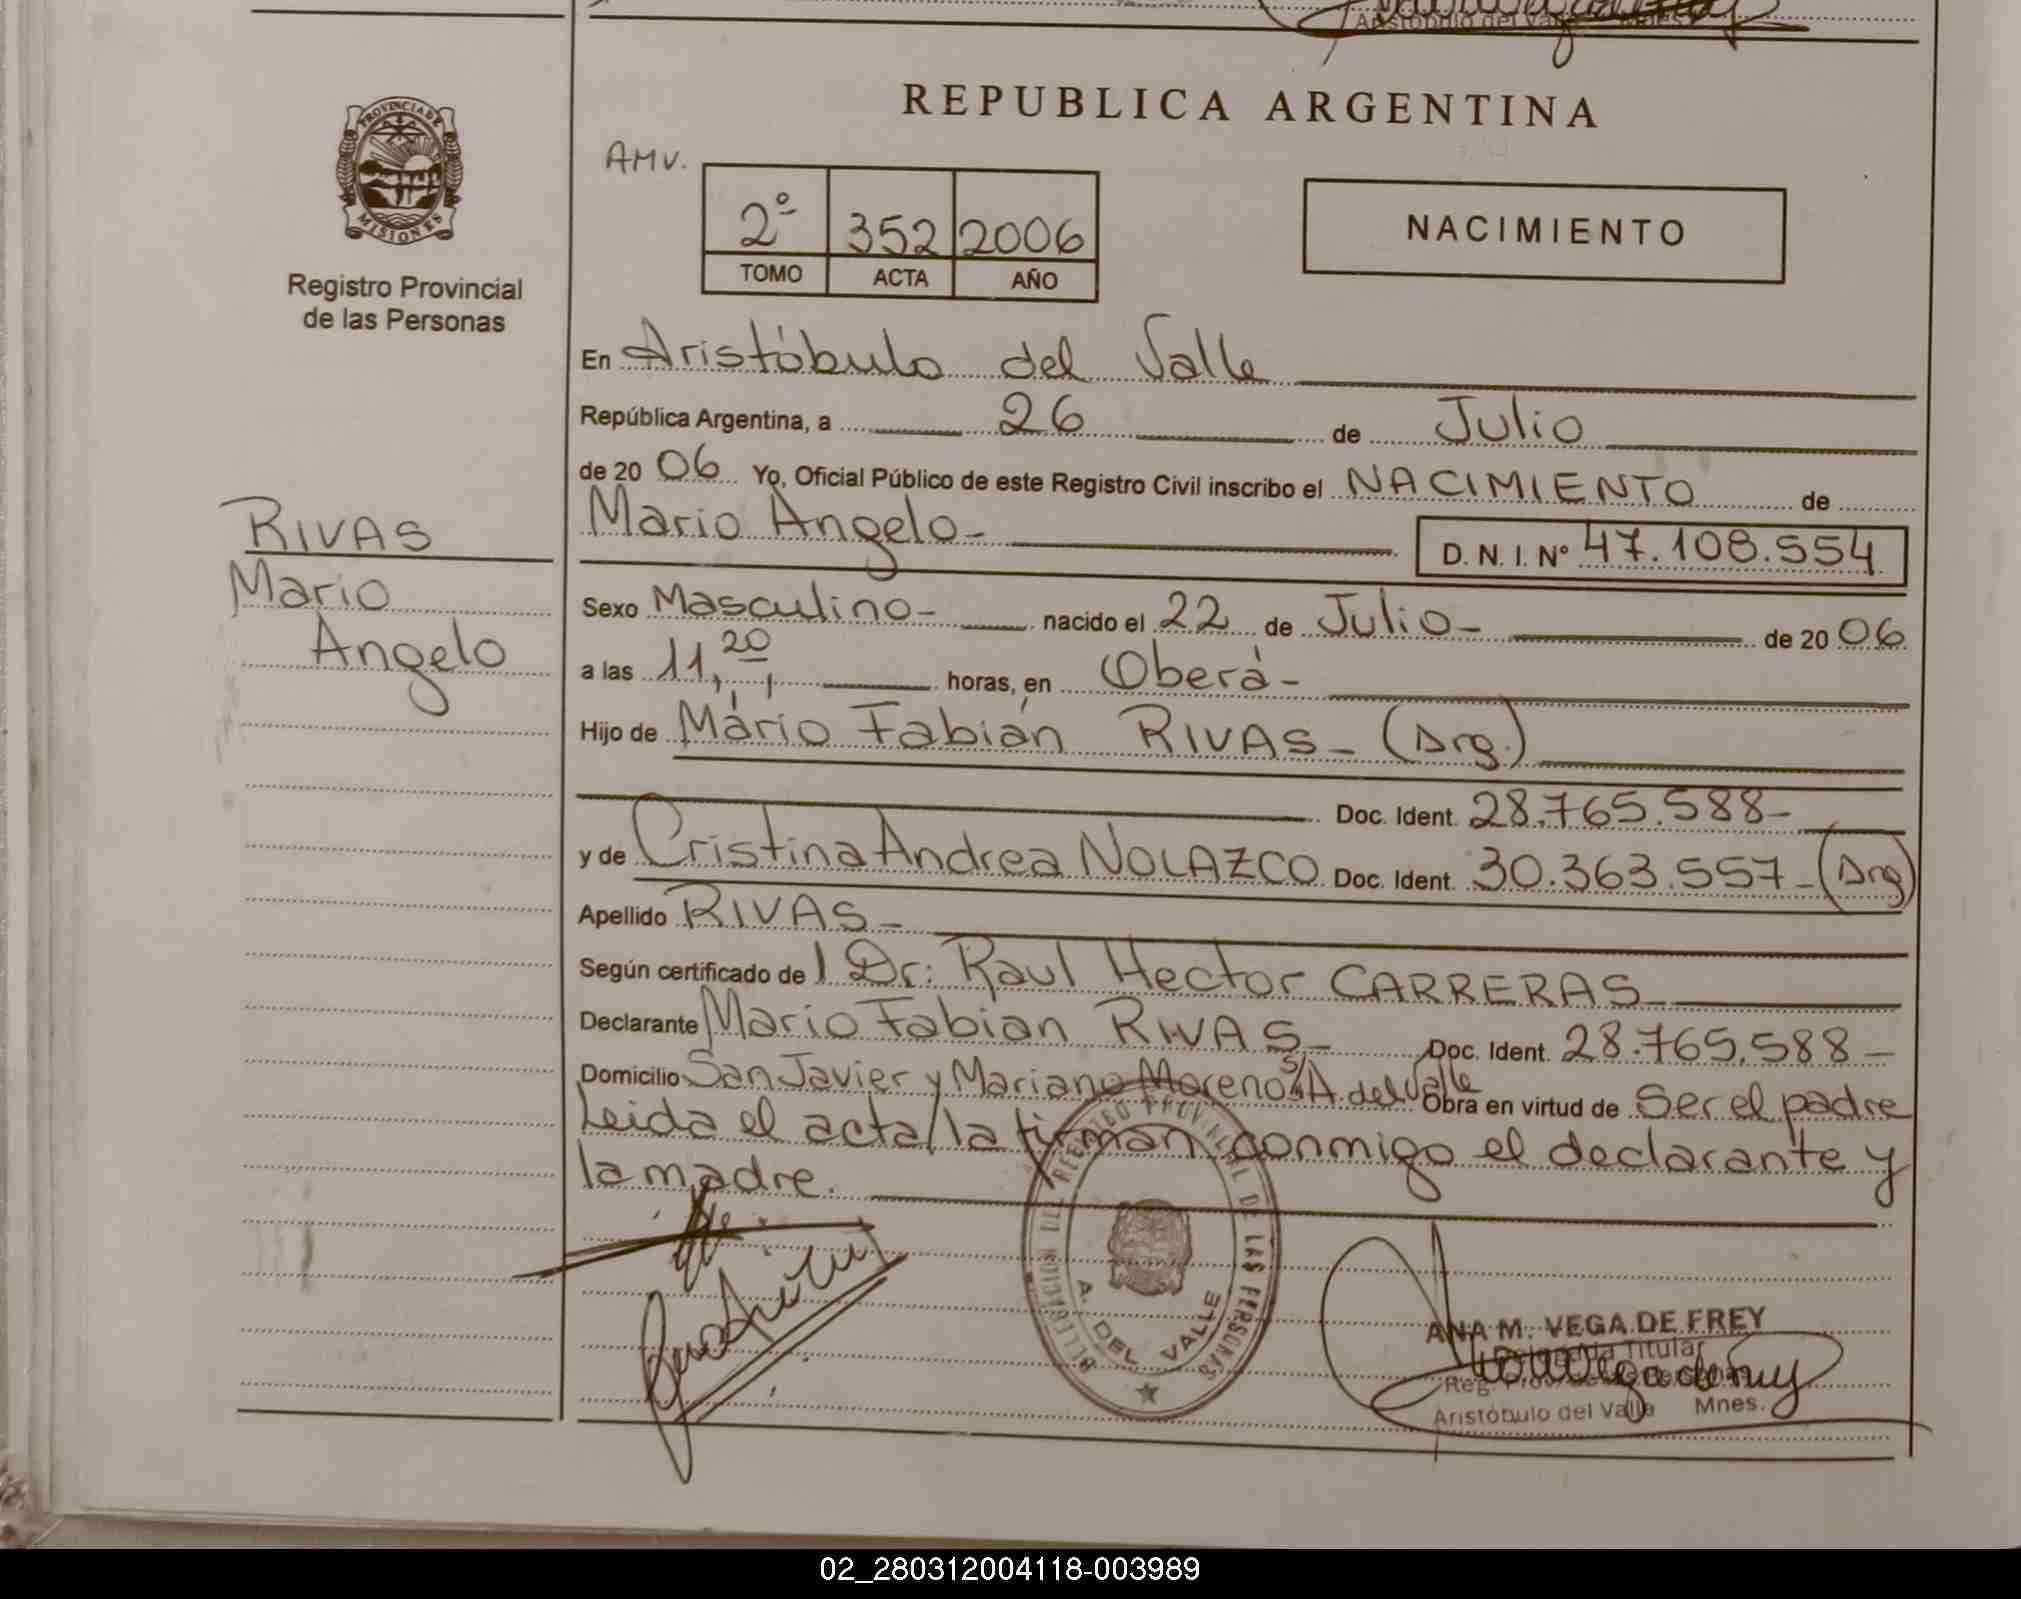 REPUBLICA ARGENTINA
PROVINCIA DE
MISIONES
Registro Provincial
de las Personas
AMV.
2º 352 2006
TOMO ACTA AÑO
NACIMIENTO
En Aristóbulo del Valle
República Argentina, a 26 de Julio
de 20 06 Yo, Oficial Público de este Registro Civil inscribo el NACIMIENTO de
RIVAS
Mario
Angelo
Mario Angelo-
D. N. I. Nº 47.108.554
Sexo Masculino- nacido el 22 de Julio- de 20 06
a las 11,20 horas, en Oberá-
Hijo de Mario Fabián RIVAS- (Arg.)
Doc. Ident. 28.765.588-
y de Cristina Andrea NOLAZCO Doc. Ident. 30.363.557-(Arg)
Apellido RIVAS-
Según certificado de l Dr: Raul Hector CARRERAS
Declarante Mario Fabian RIVAS- Doc. Ident. 28.765.588-
Domicilio San Javier y Mariano Moreno S/A. del Valle Obra en virtud de Ser el padre
Leida el acta/la firman conmigo el declarante y
la madre.
DELEGACION DEL REGISTRO PROVINCIAL DE LAS PERSONAS
A. DEL VALLE
ANA M. VEGA DE FREY
Delegada Titular
Reg.
Aristóbulo del Valle Mnes.
02_280312004118-003989